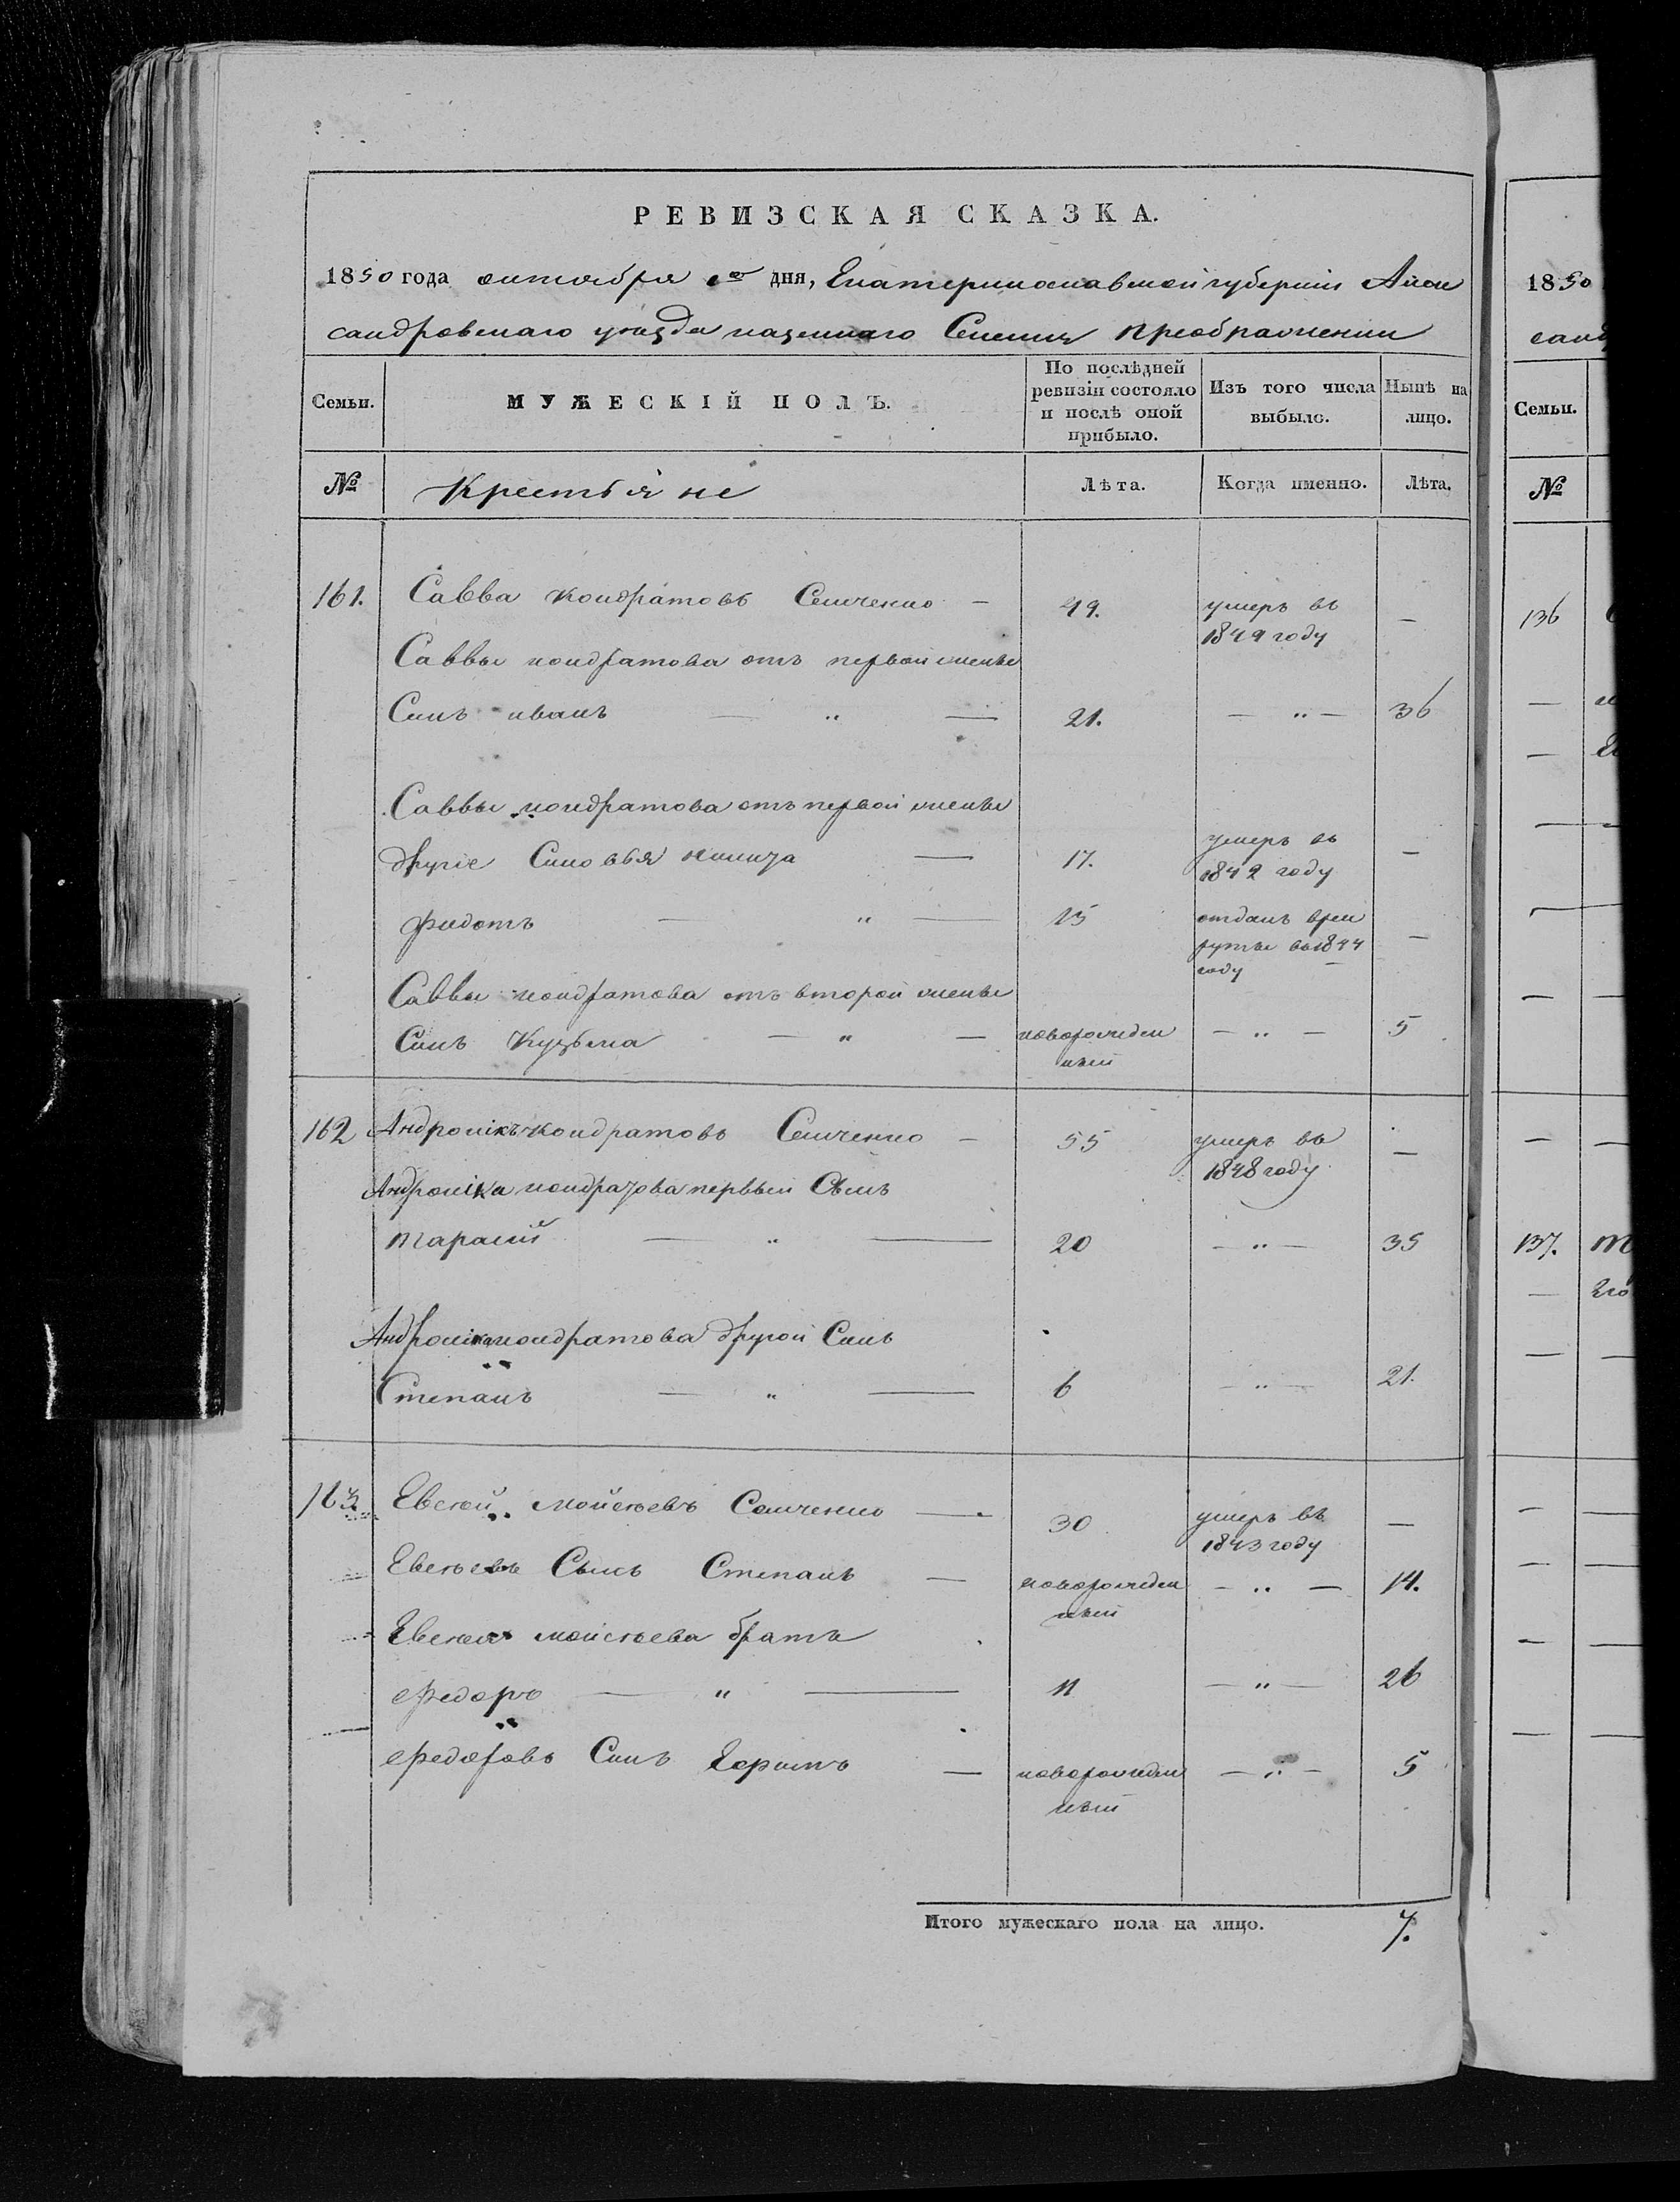 РЕВИЗСКАЯ СКАЗКА.
1850 года октября дня, Екатеринославской губерніи Алек
сандровскаго уѣзда казеннаго Селения преображенки
Семьи. МУЖЕСКІЙ ПОЛЪ. По послѣдней ревизіи состояло и послѣ оной прибыло. Изъ того числа выбыло. Нынѣ на лицо.
№ Крестьяне Лѣта. Когда именно. Лѣта.
161. Савва кондратовъ Семченко — 49. умеръ въ 1849 году —
Саввы кондратова отъ первой жены
Сынъ иванъ — " — 21. — " — 36
Саввы кондратова отъ первой жены
другіе Сыновья — 17. умеръ въ 1842 году —
фидотъ — " — 15 отданъ врек
руты въ 1844 году —
Саввы кондратова отъ второй жены
Сынъ Кузьма — " — новорожден
ный — " — 5
162 Андронікъ кондратовъ Семченко — 55 умеръ въ 1848 году —
Андроніка кондратова первый Сынъ
тарасій — " — 20 — " — 35
Андроніка кондратова другой Сынъ
Степанъ — " — 6 — " — 21.
163. Евсей мойсеевъ Семченко — 30 умеръ въ 1843 году —
Евсеевъ Сынъ Степанъ — новорожден
ный — " — 14.
Евсея мойсеева братъ
Федоръ — " — 11 — " — 26
Федоровъ Сынъ Ефимъ — новорожден
ный — " — 5
Итого мужескаго пола на лицо. 7.
1850
санд
Семьи.
№
136
137.